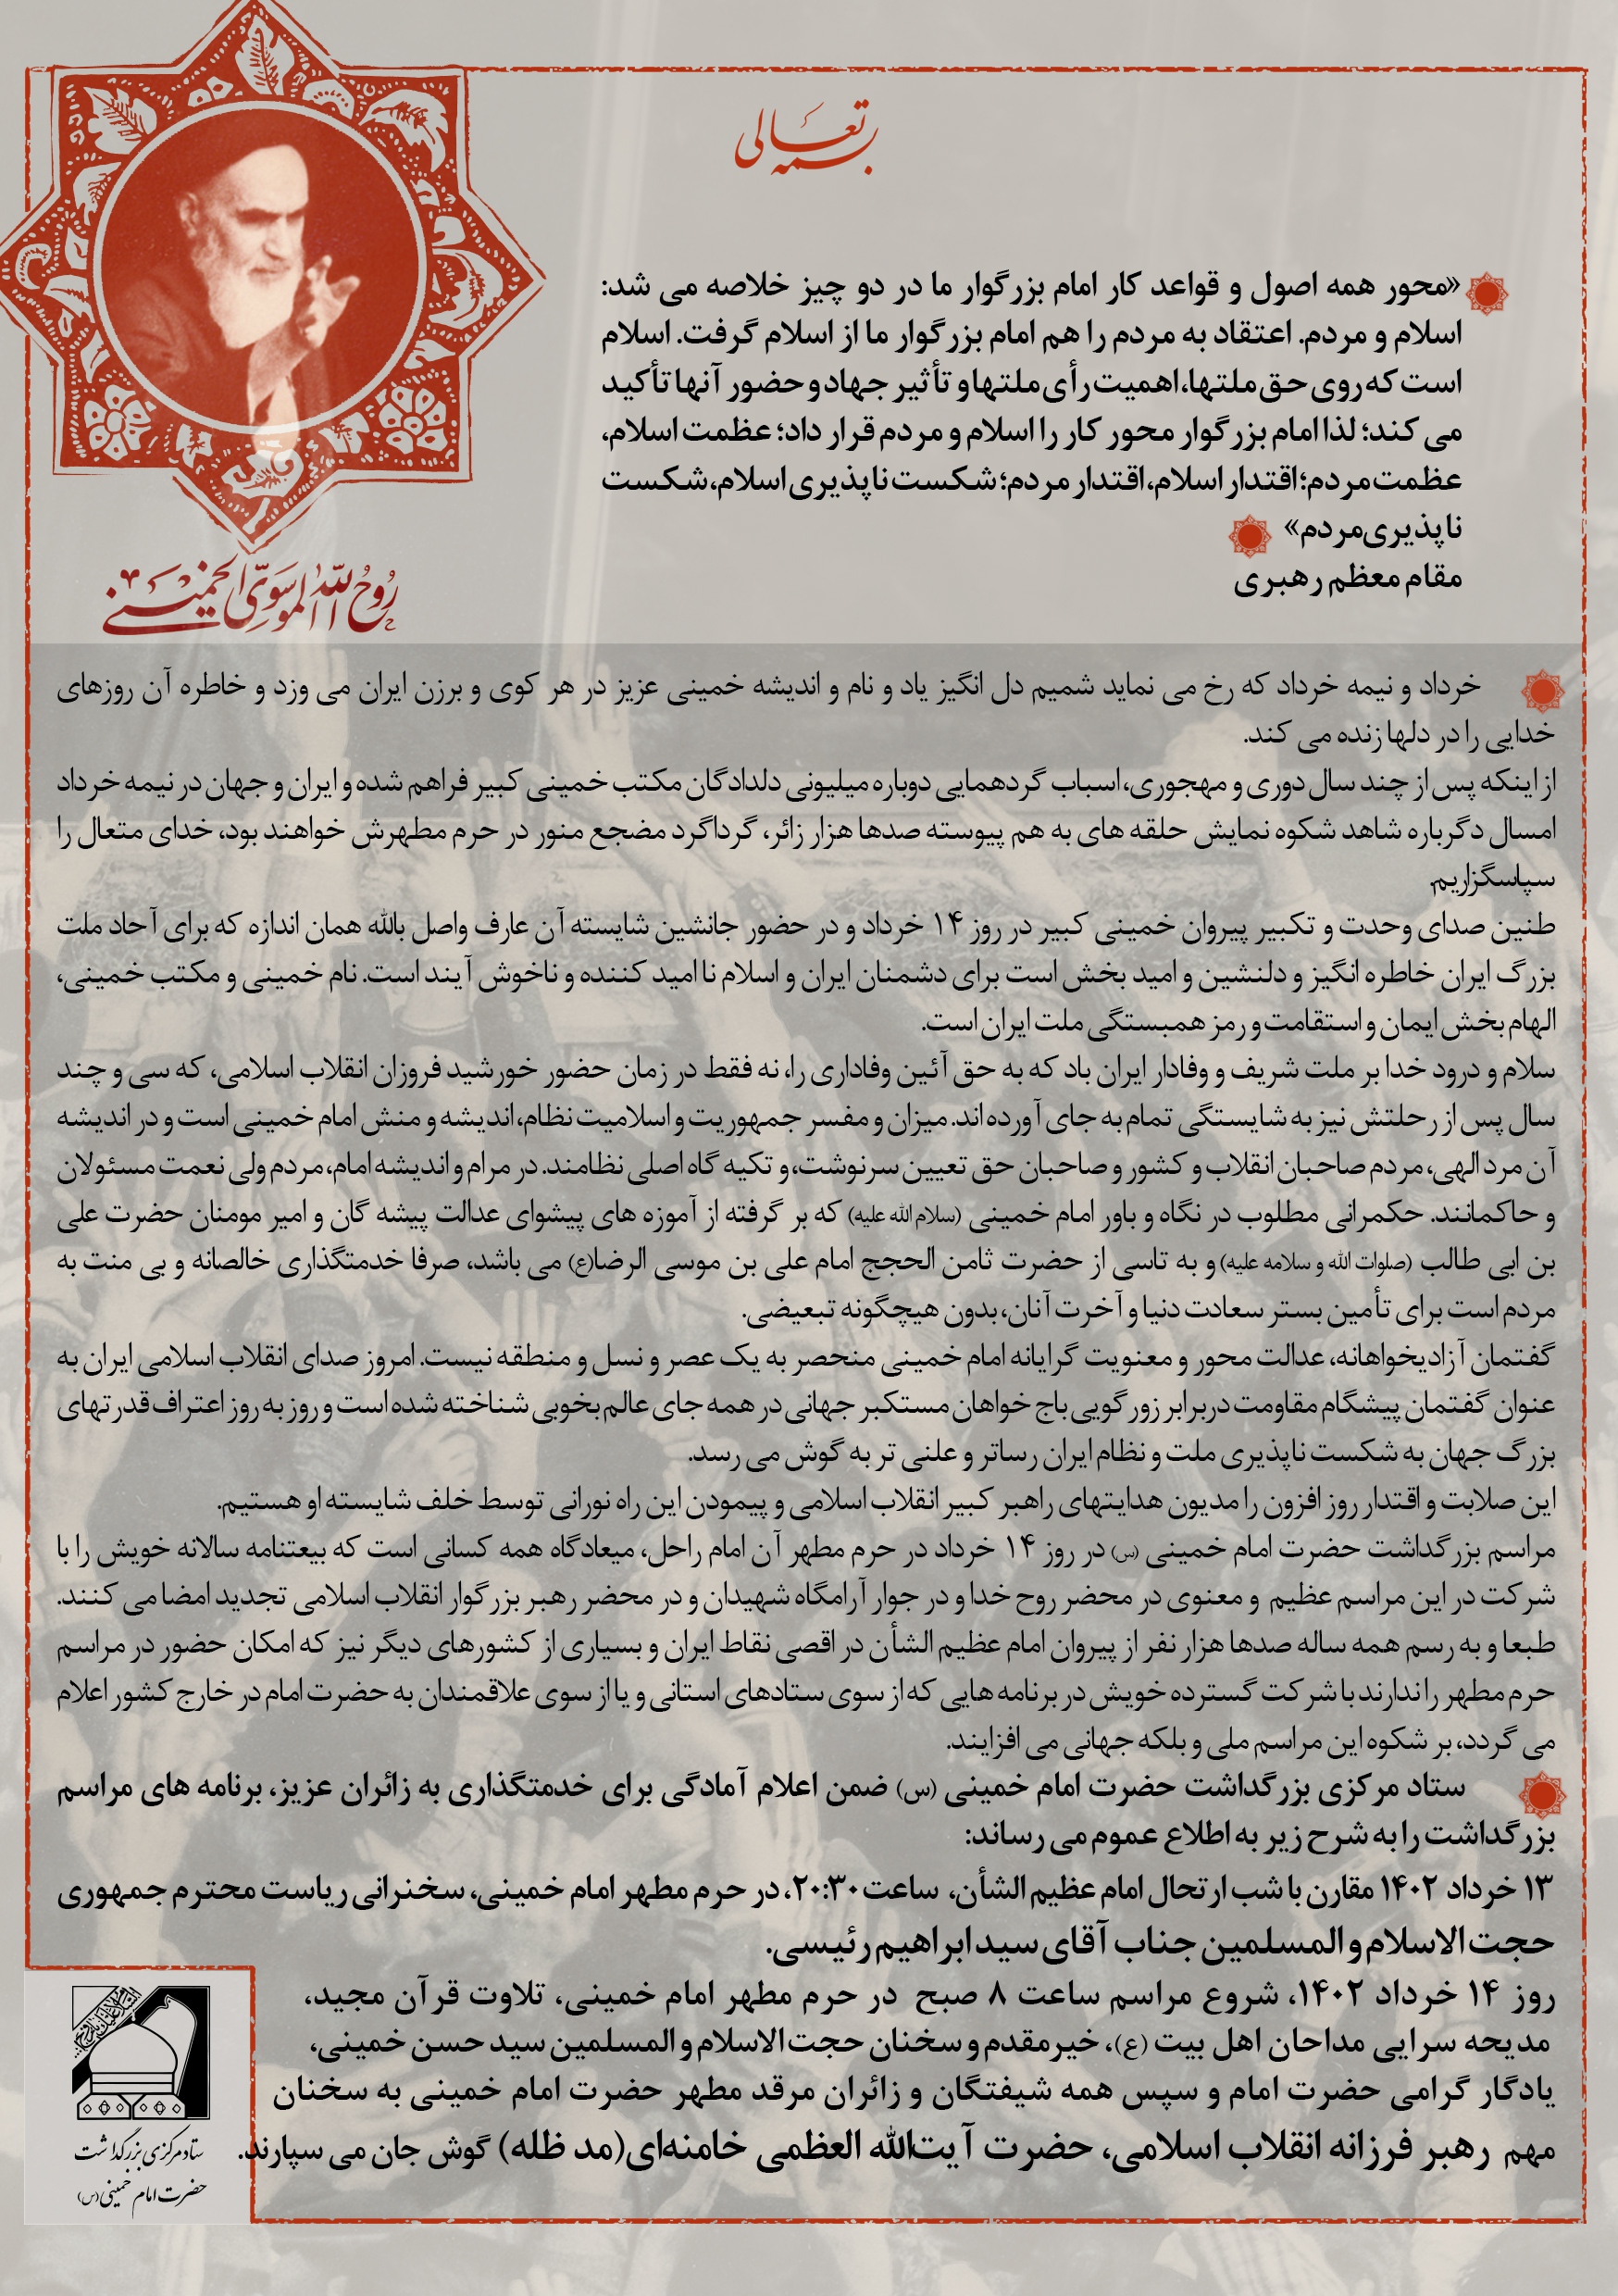 بسمه تعالی
«محور همه اصول و قواعد کار امام بزرگوار ما در دو چیز خلاصه می شد:
اسلام و مردم. اعتقاد به مردم را هم امام بزرگوار ما از اسلام گرفت. اسلام
است که روی حق ملتها، اهمیت رأی ملتها و تأثیر جهاد و حضور آنها تأکید
می کند؛ لذا امام بزرگوار محور کار را اسلام و مردم قرار داد؛ عظمت اسلام،
عظمت مردم؛ اقتدار اسلام، اقتدار مردم؛ شکست ناپذیری اسلام، شکست
ناپذیری مردم»
مقام معظم رهبری
روح الله الموسوی الخمینی
خرداد و نیمه خرداد که رخ می نماید شمیم دل انگیز یاد و نام و اندیشه خمینی عزیز در هر کوی و برزن ایران می وزد و خاطره آن روزهای
خدایی را در دلها زنده می کند.
از اینکه پس از چند سال دوری و مهجوری، اسباب گردهمایی دوباره میلیونی دلدادگان مکتب خمینی کبیر فراهم شده و ایران و جهان در نیمه خرداد
امسال دگرباره شاهد شکوه نمایش حلقه های به هم پیوسته صدها هزار زائر، گرداگرد مضجع منور در حرم مطهرش خواهند بود، خدای متعال را
سپاسگزاریم.
طنین صدای وحدت و تکبیر پیروان خمینی کبیر در روز ۱۴ خرداد و در حضور جانشین شایسته آن عارف واصل بالله همان اندازه که برای آحاد ملت
بزرگ ایران خاطره انگیز و دلنشین و امید بخش است برای دشمنان ایران و اسلام ناامید کننده و ناخوش آیند است. نام خمینی و مکتب خمینی،
الهام بخش ایمان و استقامت و رمز همبستگی ملت ایران است.
سلام و درود خدا بر ملت شریف و وفادار ایران باد که به حق آئین وفاداری را، نه فقط در زمان حضور خورشید فروزان انقلاب اسلامی، که سی و چند
سال پس از رحلتش نیز به شایستگی تمام به جای آورده اند. میزان و مفسر جمهوریت و اسلامیت نظام، اندیشه و منش امام خمینی است و در اندیشه
آن مرد الهی، مردم صاحبان انقلاب و کشور و صاحبان حق تعیین سرنوشت، و تکیه گاه اصلی نظامند. در مرام و اندیشه امام، مردم ولی نعمت مسئولان
و حاکمانند. حکمرانی مطلوب در نگاه و باور امام خمینی (سلام الله علیه) که بر گرفته از آموزه های پیشوای عدالت پیشه گان و امیر مومنان حضرت علی
بن ابی طالب (صلوات الله و سلامه علیه) و به تاسی از حضرت ثامن الحجج امام علی بن موسی الرضا(ع) می باشد، صرفا خدمتگذاری خالصانه و بی منت به
مردم است برای تأمین بستر سعادت دنیا و آخرت آنان، بدون هیچگونه تبعیضی.
گفتمان آزادیخواهانه، عدالت محور و معنویت گرایانه امام خمینی منحصر به یک عصر و نسل و منطقه نیست. امروز صدای انقلاب اسلامی ایران به
عنوان گفتمان پیشگام مقاومت در برابر زورگویی باج خواهان مستکبر جهانی در همه جای عالم بخوبی شناخته شده است و روز به روز اعتراف قدرتهای
بزرگ جهان به شکست ناپذیری ملت و نظام ایران رساتر و علنی تر به گوش می رسد.
این صلابت و اقتدار روز افزون را مدیون هدایتهای راهبر کبیر انقلاب اسلامی و پیمودن این راه نورانی توسط خلف شایسته او هستیم.
مراسم بزرگداشت حضرت امام خمینی (س) در روز ۱۴ خرداد در حرم مطهر آن امام راحل، میعادگاه همه کسانی است که بیعتنامه سالانه خویش را با
شرکت در این مراسم عظیم و معنوی در محضر روح خدا و در جوار آرامگاه شهیدان و در محضر رهبر بزرگوار انقلاب اسلامی تجدید امضا می کنند.
طبعا و به رسم همه ساله صدها هزار نفر از پیروان امام عظیم الشأن در اقصی نقاط ایران و بسیاری از کشورهای دیگر نیز که امکان حضور در مراسم
حرم مطهر را ندارند با شرکت گسترده خویش در برنامه هایی که از سوی ستادهای استانی و یا از سوی علاقمندان به حضرت امام در خارج کشور اعلام
می گردد، بر شکوه این مراسم ملی و بلکه جهانی می افزایند.
ستاد مرکزی بزرگداشت حضرت امام خمینی (س) ضمن اعلام آمادگی برای خدمتگذاری به زائران عزیز، برنامه های مراسم
بزرگداشت را به شرح زیر به اطلاع عموم می رساند:
۱۳ خرداد ۱۴۰۲ مقارن با شب ارتحال امام عظیم الشأن، ساعت ۲۰:۳۰، در حرم مطهر امام خمینی، سخنرانی ریاست محترم جمهوری
حجت الاسلام و المسلمین جناب آقای سید ابراهیم رئیسی.
روز ۱۴ خرداد ۱۴۰۲، شروع مراسم ساعت ۸ صبح در حرم مطهر امام خمینی، تلاوت قرآن مجید،
مدیحه سرایی مداحان اهل بیت (ع)، خیرمقدم و سخنان حجت الاسلام و المسلمین سید حسن خمینی،
یادگار گرامی حضرت امام و سپس همه شیفتگان و زائران مرقد مطهر حضرت امام خمینی به سخنان
مهم رهبر فرزانه انقلاب اسلامی، حضرت آیت‌الله العظمی خامنه‌ای(مد ظله) گوش جان می سپارند.
ستاد مرکزی بزرگداشت
حضرت امام خمینی(س)